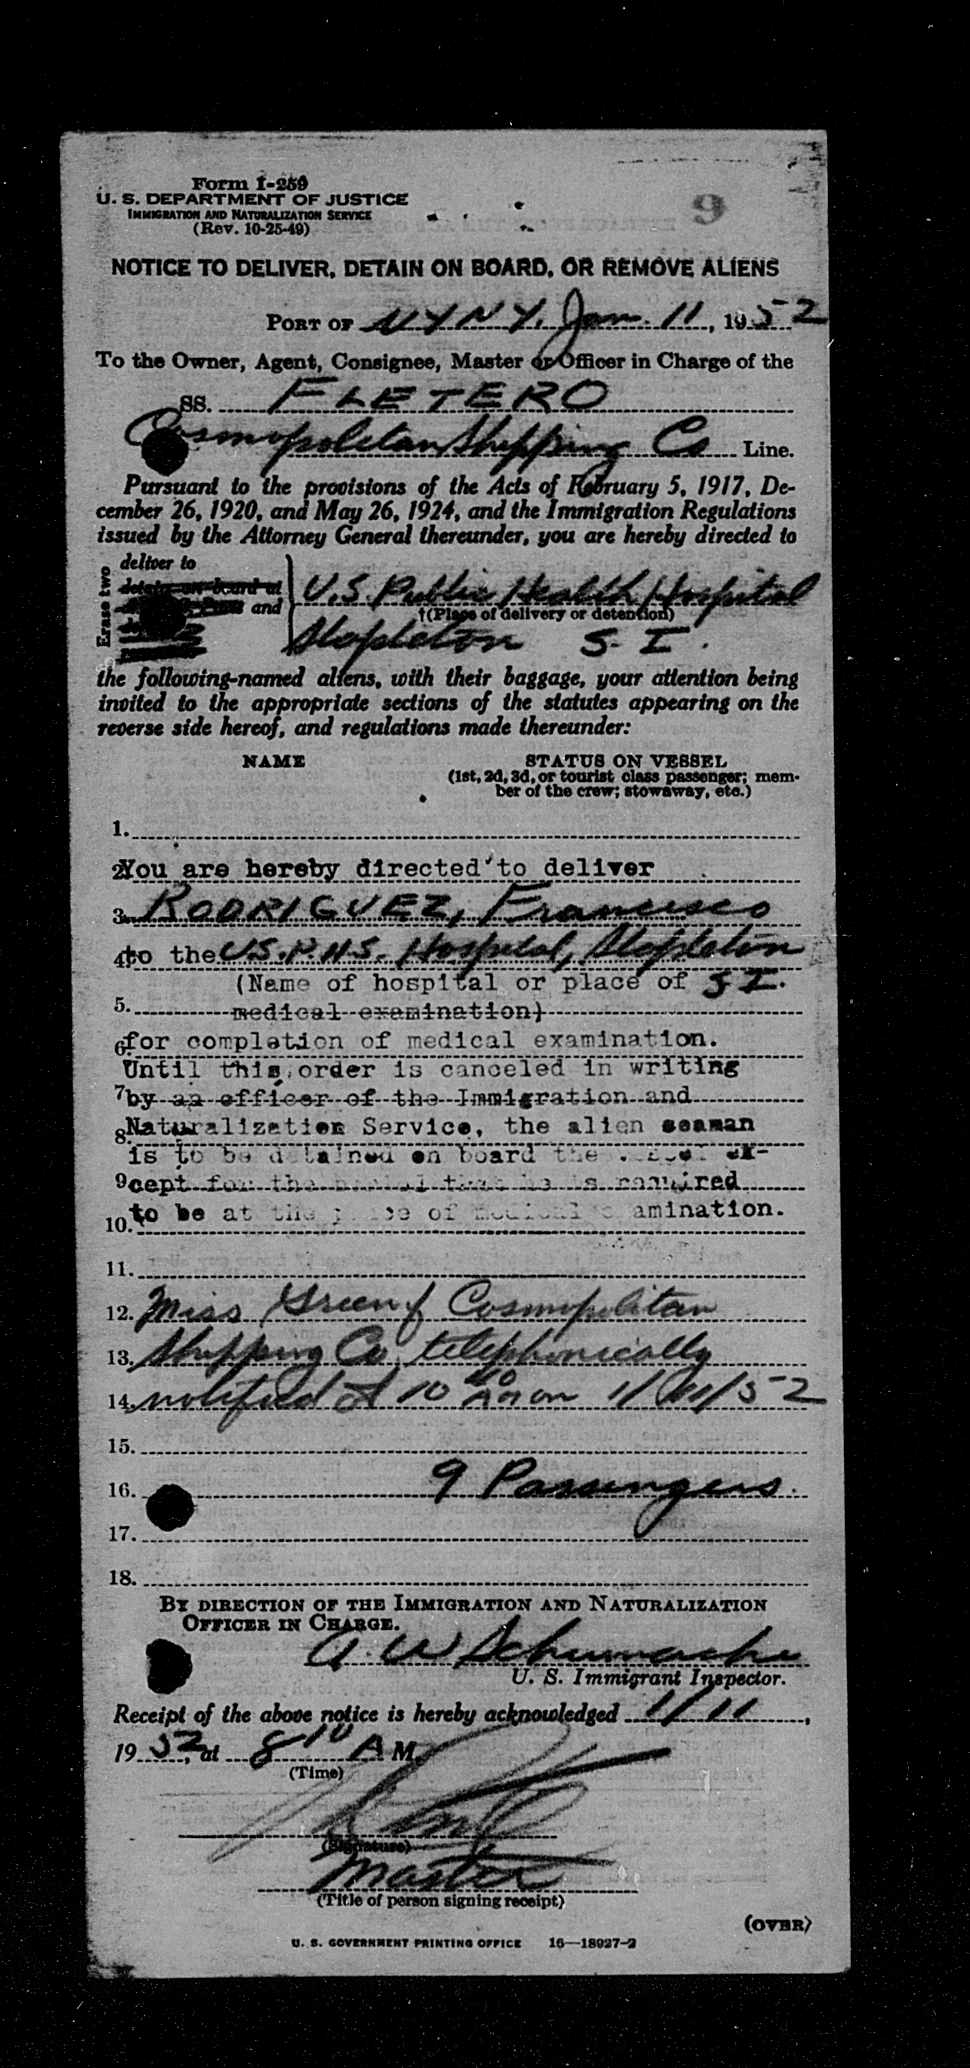 Form I-259
U. S. DEPARTMENT OF JUSTICE
IMMIGRATION AND NATURALIZATION SERVICE
(Rev. 10-25-49)
9
NOTICE TO DELIVER, DETAIN ON BOARD, OR REMOVE ALIENS
PORT OF NYNY, Jan. 11, 1952
To the Owner, Agent, Consignee, Master or Officer in Charge of the
SS. FLETERO
Cosmopolitan Shipping Co Line.
Pursuant to the provisions of the Acts of February 5, 1917, De-
cember 26, 1920, and May 26, 1924, and the Immigration Regulations
issued by the Attorney General thereunder, you are hereby directed to
Erase two
deliver to
detain on board at
and
U.S. Public Health Hospital
†(Place of delivery or detention)
Stapleton S. I.
the following-named aliens, with their baggage, your attention being
invited to the appropriate sections of the statutes appearing on the
reverse side hereof, and regulations made thereunder:
NAME STATUS ON VESSEL
(1st, 2d, 3d, or tourist class passenger; mem-
ber of the crew; stowaway, etc.)
1.
2. You are hereby directed to deliver
3. RODRIGUEZ, Francisco
4. to the U.S.P.H.S. Hospital, Stapleton
(Name of hospital or place of S I.
5. medical examination)
6. for completion of medical examination.
Until this order is canceled in writing
7. by an officer of the Immigration and
8. Naturalization Service, the alien seaman
is to be detained on board the vessel ex-
9. cept for the period that he is required
10. to be at the place of medical examination.
11.
12. Miss Green of Cosmopolitan
13. Shipping Co. telephonically
14. notified at 10 40 AM on 1/11/52
15.
16. 9 Passengers.
17.
18.
BY DIRECTION OF THE IMMIGRATION AND NATURALIZATION
OFFICER IN CHARGE.
A. W Schumacher
U. S. Immigrant Inspector.
Receipt of the above notice is hereby acknowledged 1/11,
1952, at 8 10 A M.
(Time)
(Signature)
Master
(Title of person signing receipt)
(OVER)
U. S. GOVERNMENT PRINTING OFFICE 16—18927-2